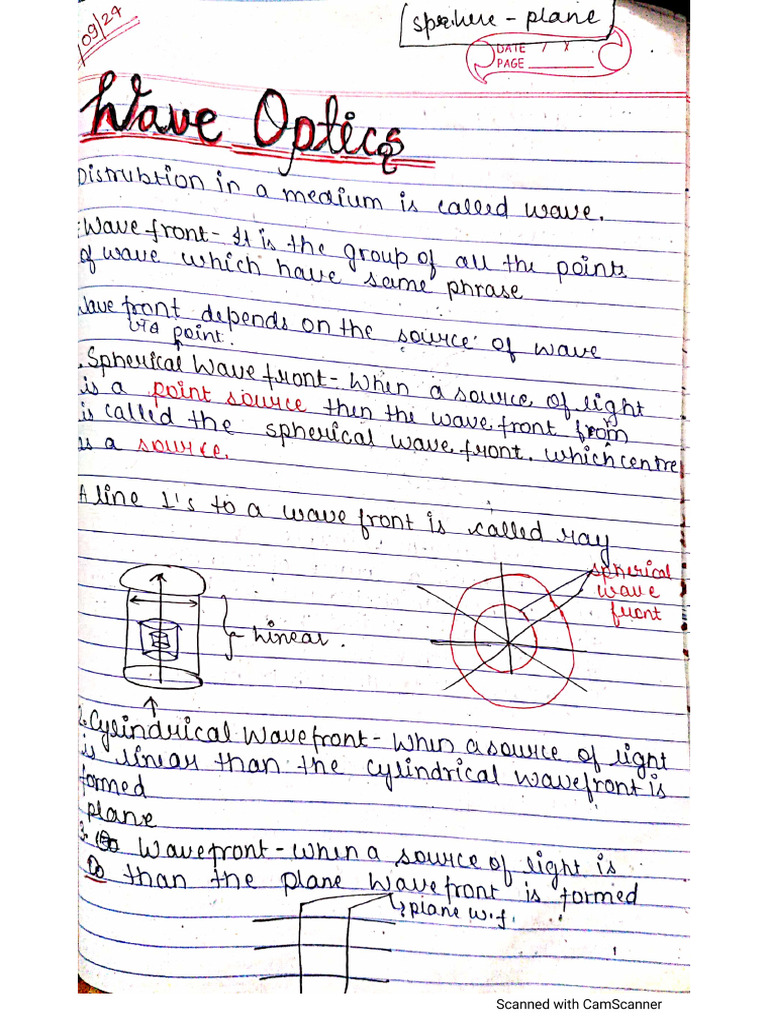 /09/24
sphere - plane
DATE / /
PAGE
Wave Optics
Distrubtion in a medium is called wave.
Wave front- It is the group of all the points
of wave which have same phrase
Wave front depends on the source of wave
via point.
Spherical Wave front- When a source of light
is a point source then the wave front from
is called the spherical wave front. which centre
is a source.
A line ⊥'s to a wave front is called ray
spherical
wave
front
Linear.
2. Cylindrical wavefront- When a source of light
is linear than the cylindrical wavefront is
formed
plane
3. Wavefront- when a source of light is
∞ than the plane wavefront is formed
plane w.f.
1
Scanned with CamScanner